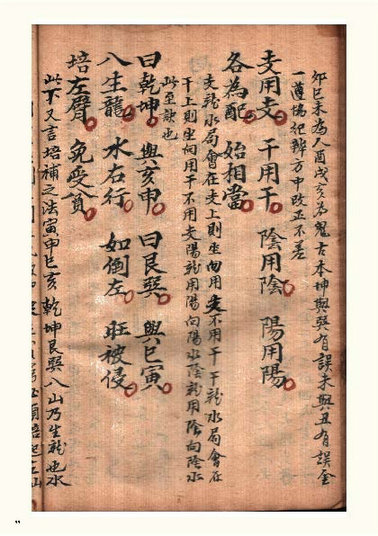 卯巳未為人酉戌亥為鬼古本坤與巽有誤未與丑有誤金
一道協紀辨方中改正不差
支用支 干用干 陰用陰 陽用陽
各為配 始相當
支龍水局會在支上則坐向用支不用干干龍水局會在
干上則坐向用干不用支陽龍用陽向陽水陰龍用陰向陰水
此至訣也
曰乾坤 與亥申 曰艮巽 與巳寅
八生龍 水石行 如倒左 旺被侵
培左臂 免受貧
此下又言培補之法寅申巳亥乾坤艮巽八山乃生龍也水